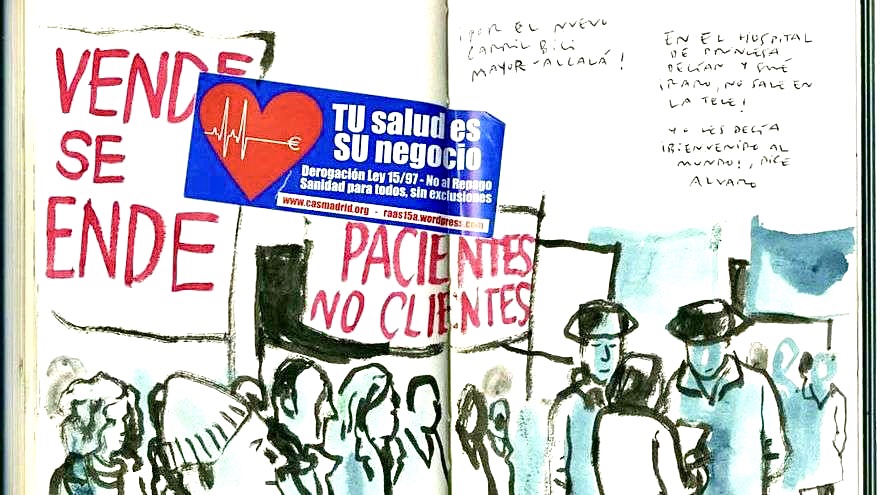 VENDE
SE
ENDE
TU salud es
SU negocio
Derogación Ley 15/97 - No al Repago
Sanidad para todos, sin exclusiones
www.casmadrid.org - raas15a.wordpress.com
PACIENTES
NO CLIENTES
¡POR EL NUEVO
CARRIL BICI
MAYOR-ALCALÁ!
EN EL HOSPITAL
DE PRINCESA
DECÍAN Y QUÉ
¡RARO, NO SALE EN
LA TELE!
YO LES DECÍA
¡BIENVENIDO AL
MUNDO!, DICE
ALVARO